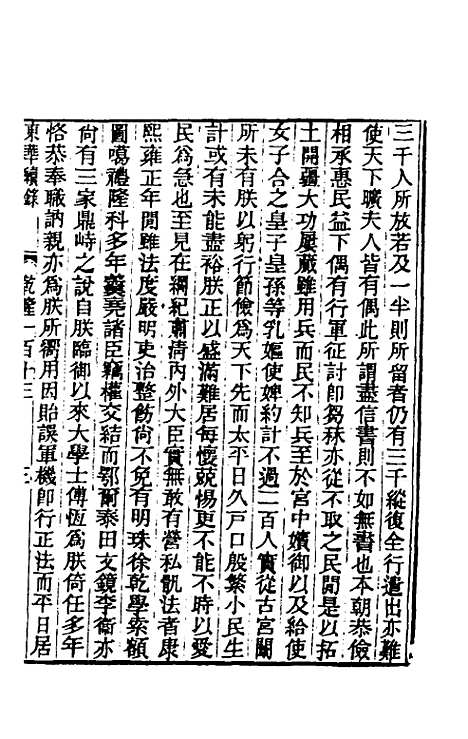 三千人所放若及一半則所留者仍有三千縱復全行遣出亦難
使天下曠夫人皆有偶此所謂盡信書則不如無書也本朝恭儉
相承惠民益下偶有行軍征討卽芻秣亦從不取之民閒是以拓
土開疆大功屢蕆雖用兵而民不知兵至於宮中嬪御以及給使
女子合之皇子皇孫等乳嫗使婢約計不過二百人實從古宮闈
所未有朕以躬行節儉爲天下先而太平日久戸口殷繁小民生
計或有未能盡裕朕正以盛滿難居每懷兢惕更不能不時以愛
民爲急也至見在綱紀肅淸內外大臣實無敢有營私骫法者康
熙雍正年閒雖法度嚴明吏治整飭尙不免有明珠徐乾學索額
圖噶禮隆科多年羹堯諸臣竊權交結而鄂爾泰田文鏡李衞亦
尙有三家鼎峙之說自朕臨御以來大學士傅恆爲朕倚任多年
恪恭奉職訥親亦爲朕所嚮用因貽誤軍機卽行正法而平日居
東華續錄 乾隆一百十三 三